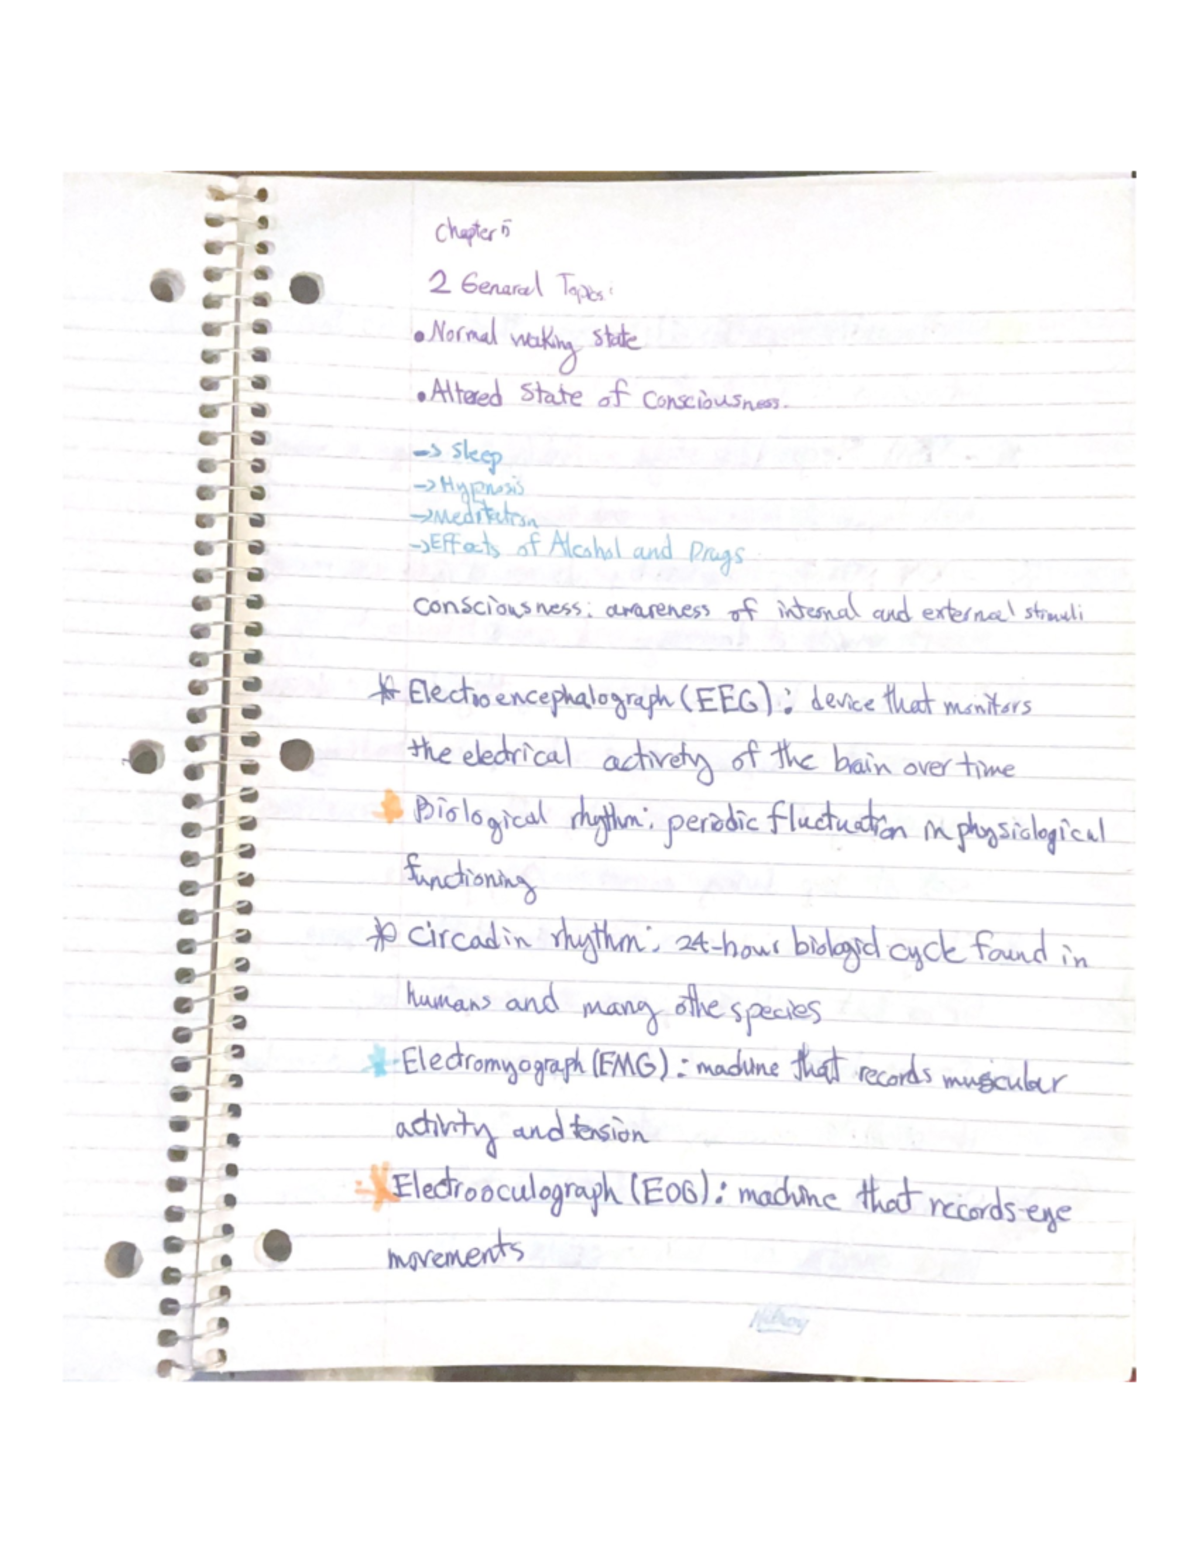 Chapter 5
2 General Topics:
• Normal waking state
• Altered State of Consciousness.
-> Sleep
-> Hypnosis
-> Meditation
-> Effects of Alcohol and Drugs
Consciousness: awareness of internal and external stimuli
* Electroencephalograph (EEG): device that monitors
the electrical activety of the brain over time
* Biological rhythm: periodic fluctuation in physiological
functioning
* Circadin rhythm: 24-hour biologicl cycle found in
humans and many othe species
* Electromyograph (EMG): machine that records muscular
activity and tension
* Electrooculograph (EOG): machine that records eye
movements